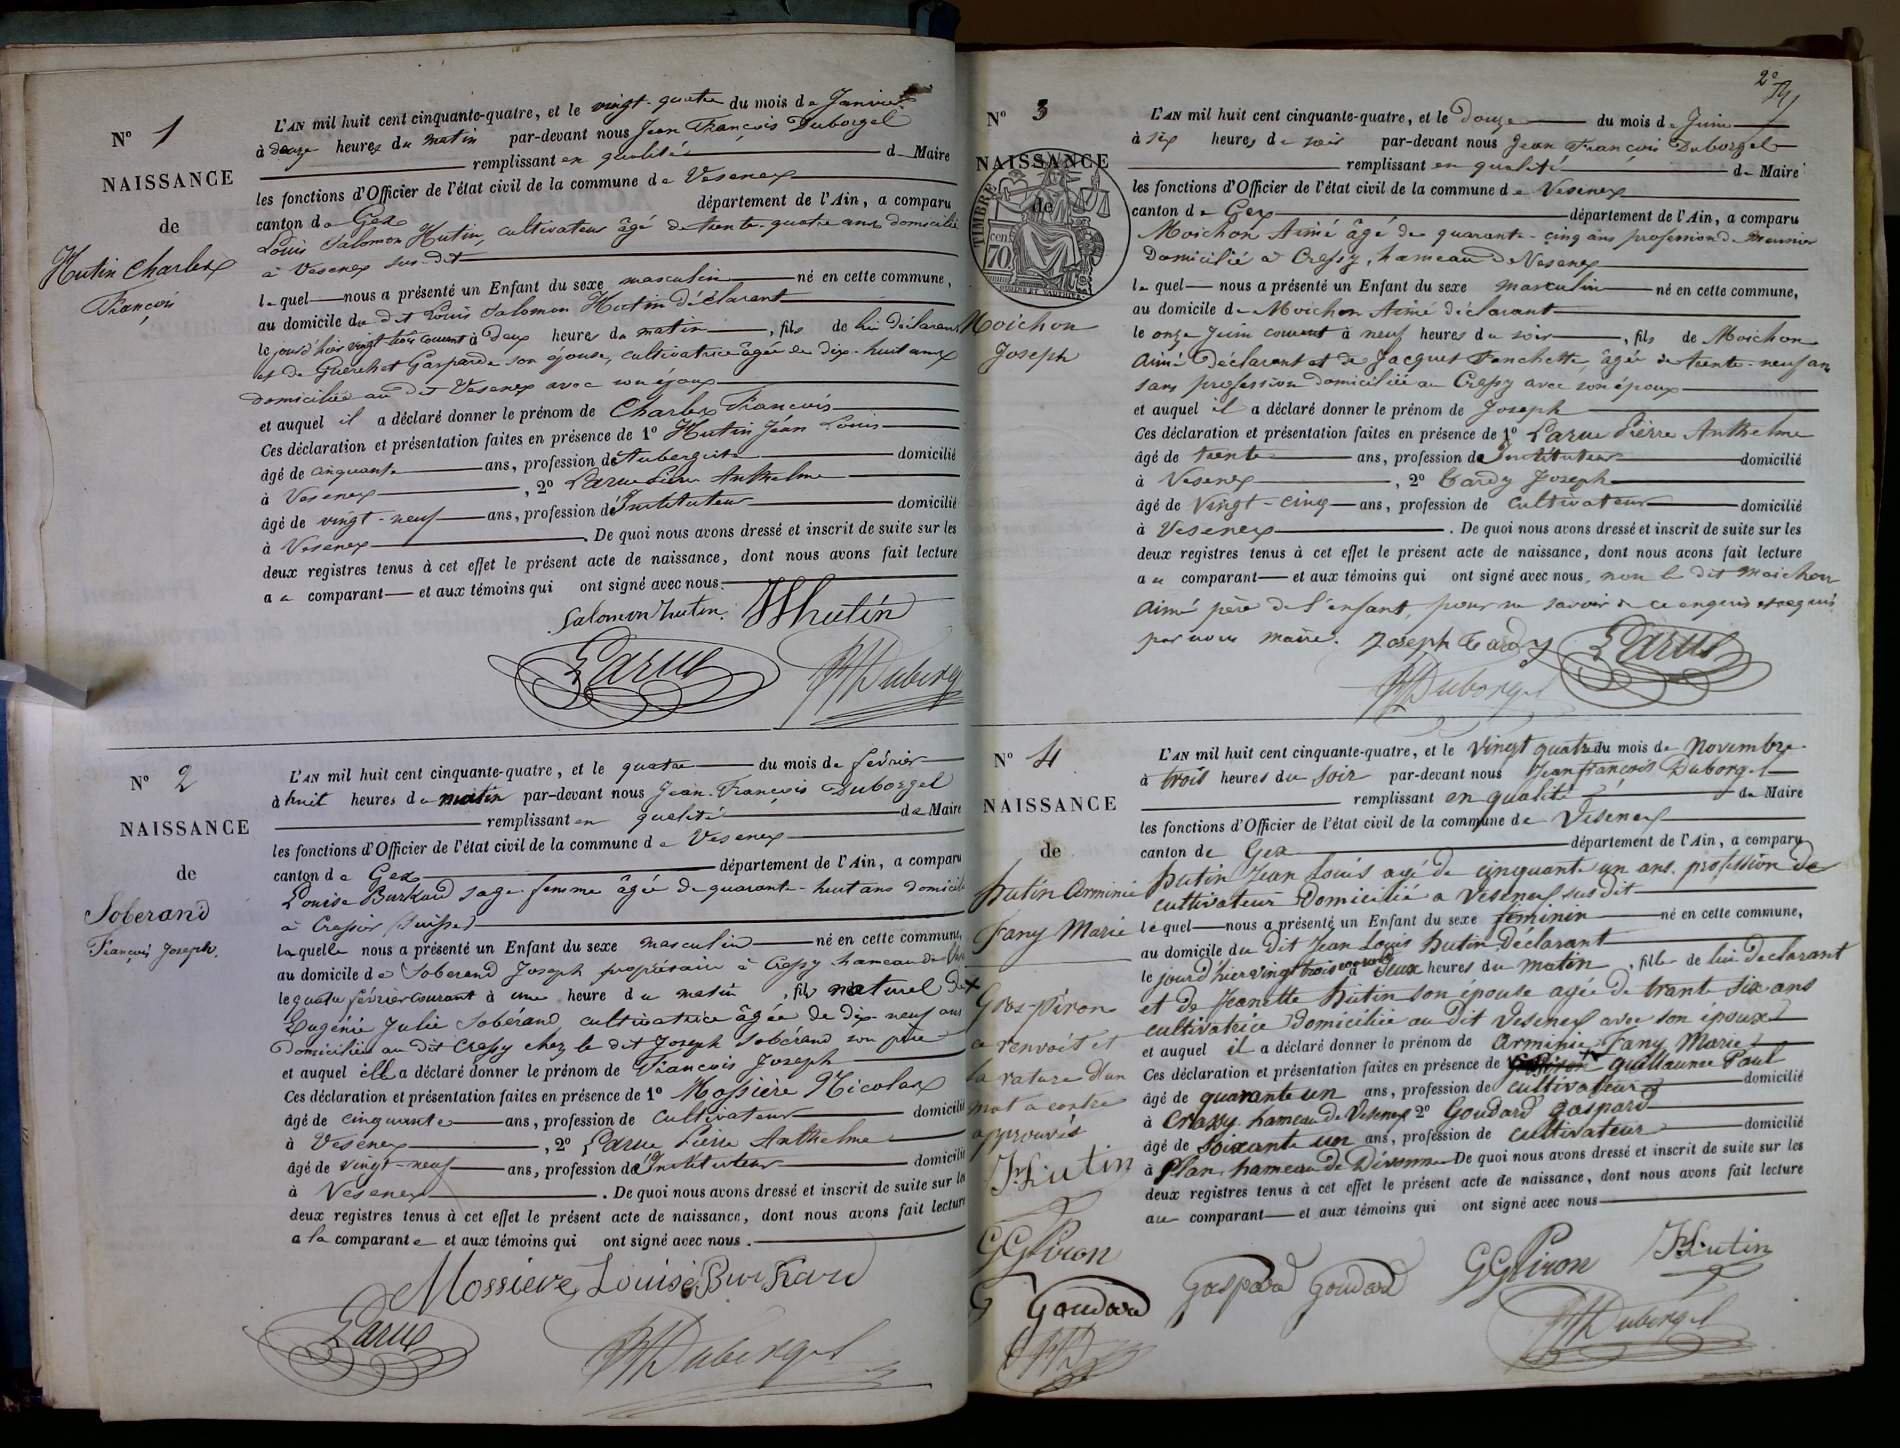 N° 1
NAISSANCE
de
Hutin Charles
François
L'AN mil huit cent cinquante-quatre, et le vingt-quatre du mois de Janvier
à douze heures du matin par-devant nous Jean François Duborgel
remplissant en qualité de Maire
les fonctions d'Officier de l'état civil de la commune de Vesenex
canton de Gex département de l'Ain, a comparu
Louis Salomon Hutin, cultivateur âgé de trente-quatre ans domicilié
à Vesenex sus-dit
lequel nous a présenté un Enfant du sexe masculin né en cette commune,
au domicile du dit Louis Salomon Hutin déclarant
le jour d'hier vingt trois courant à deux heures du matin, fils de lui déclarant
et de Guerchet Gasparde son épouse, cultivatrice âgée de dix-huit ans
domiciliée au dit Vesenex avec son époux
et auquel il a déclaré donner le prénom de Charles François
Ces déclaration et présentation faites en présence de 1° Hutin Jean Louis
âgé de cinquante ans, profession d'Aubergiste domicilié
à Vesenex, 2° Larue Pierre Anthelme
âgé de vingt-neuf ans, profession d'Instituteur domicilié
à Vesenex. De quoi nous avons dressé et inscrit de suite sur les
deux registres tenus à cet effet le présent acte de naissance, dont nous avons fait lecture
au comparant et aux témoins qui ont signé avec nous.
Salomon hutin. JLhutin
Larue JFDuborgel
N° 2
NAISSANCE
de
Soberand
François Joseph.
L'AN mil huit cent cinquante-quatre, et le quatre du mois de février
à huit heures du matin par-devant nous Jean-François Duborgel
remplissant en qualité de Maire
les fonctions d'Officier de l'état civil de la commune de Vesenex
canton de Gex département de l'Ain, a comparu
Louise Burkard sage-femme âgée de quarante-huit ans domicilié
à Crassier (Suisse)
laquelle nous a présenté un Enfant du sexe masculin né en cette commune,
au domicile de Soberand Joseph propriétaire à Crassy hameau de
le quatre février courant à une heure du matin, fils naturel de
Eugénie Julie Sobérand, cultivatrice âgée de dix-neuf ans
domiciliée au dit Crassy chez le dit Joseph Sobérand son père
et auquel elle a déclaré donner le prénom de François Joseph
Ces déclaration et présentation faites en présence de 1° Mossière Nicolas
âgé de cinquante ans, profession de Cultivateur domicilié
à Vesenex, 2° Larue Pierre Anthelme
âgé de vingt-neuf ans, profession d'Instituteur domicilié
à Vesenex. De quoi nous avons dressé et inscrit de suite sur les
deux registres tenus à cet effet le présent acte de naissance, dont nous avons fait lecture
a la comparante et aux témoins qui ont signé avec nous.
Mossiere Louise Burkard
Larue JFDuborgel
2°
N° 3
NAISSANCE
de
TIMBRE
70 cen
Moichon
Joseph
L'AN mil huit cent cinquante-quatre, et le Douze du mois de Juin
à six heures du soir par-devant nous Jean François Duborgel
remplissant en qualité de Maire
les fonctions d'Officier de l'état civil de la commune de Vesenex
canton de Gex département de l'Ain, a comparu
Moichon Aimé âgé de quarante-cinq ans profession de Meunier
Domicilié à Crassy, hameau de Vesenex
lequel nous a présenté un Enfant du sexe masculin né en cette commune,
au domicile de Moichon Aimé déclarant
le onze Juin courant à neuf heures du soir, fils de Moichon
Aimé Déclarant et de Jacquet Fanchette, âgée de trente-neuf ans
sans profession domiciliée au Crassy avec son époux
et auquel il a déclaré donner le prénom de Joseph
Ces déclaration et présentation faites en présence de 1° Larue Pierre Anthelme
âgé de trente ans, profession d'Instituteur domicilié
à Vesenex, 2° Tardy Joseph
âgé de Vingt-cinq ans, profession de Cultivateur domicilié
à Vesenex. De quoi nous avons dressé et inscrit de suite sur les
deux registres tenus à cet effet le présent acte de naissance, dont nous avons fait lecture
au comparant et aux témoins qui ont signé avec nous, non le dit Moichon
Aimé père de l'enfant, pour ne savoir de ce enquis et requis
par nous maire. Joseph Tardy Larue
JFDuborgel
N° 4
NAISSANCE
de
hutin Arminie
Fany Marie
Gros-piron
ce renvoit et
la rature d'un
mot a contre
approuvés
JLhutin
GGPiron
G Goudard
L'AN mil huit cent cinquante-quatre, et le Vingt quatre du mois de Novembre
à trois heures du soir par-devant nous Jean françois Duborgel
remplissant en qualité de Maire
les fonctions d'Officier de l'état civil de la commune de Vesenex
canton de Gex département de l'Ain, a comparu
hutin Jean Louis agé de cinquante un ans. profession de
cultivateur Domicilié a Vesenex susdit
lequel nous a présenté un Enfant du sexe féminin né en cette commune,
au domicile du dit Jean Louis hutin Déclarant
le jour d'hier vingt trois courant à Deux heures du matin, fille de lui Declarant
et de Jeanette hutin son épouse agée de trante six ans
cultivatrice Domiciliée au dit Vesenex avec son époux
et auquel il a déclaré donner le prénom de Arminie Fany Marie
Ces déclaration et présentation faites en présence de guillaume Paul
âgé de quarante un ans, profession de cultivateur domicilié
à Crassy hameau de Vesenex 2° Goudard gaspard
âgé de Soixante un ans, profession de cultivateur domicilié
à Plan hameau de Divonne De quoi nous avons dressé et inscrit de suite sur les
deux registres tenus à cet effet le présent acte de naissance, dont nous avons fait lecture
au comparant et aux témoins qui ont signé avec nous
gaspard Goudard GGPiron JLhutin
JFDuborgel